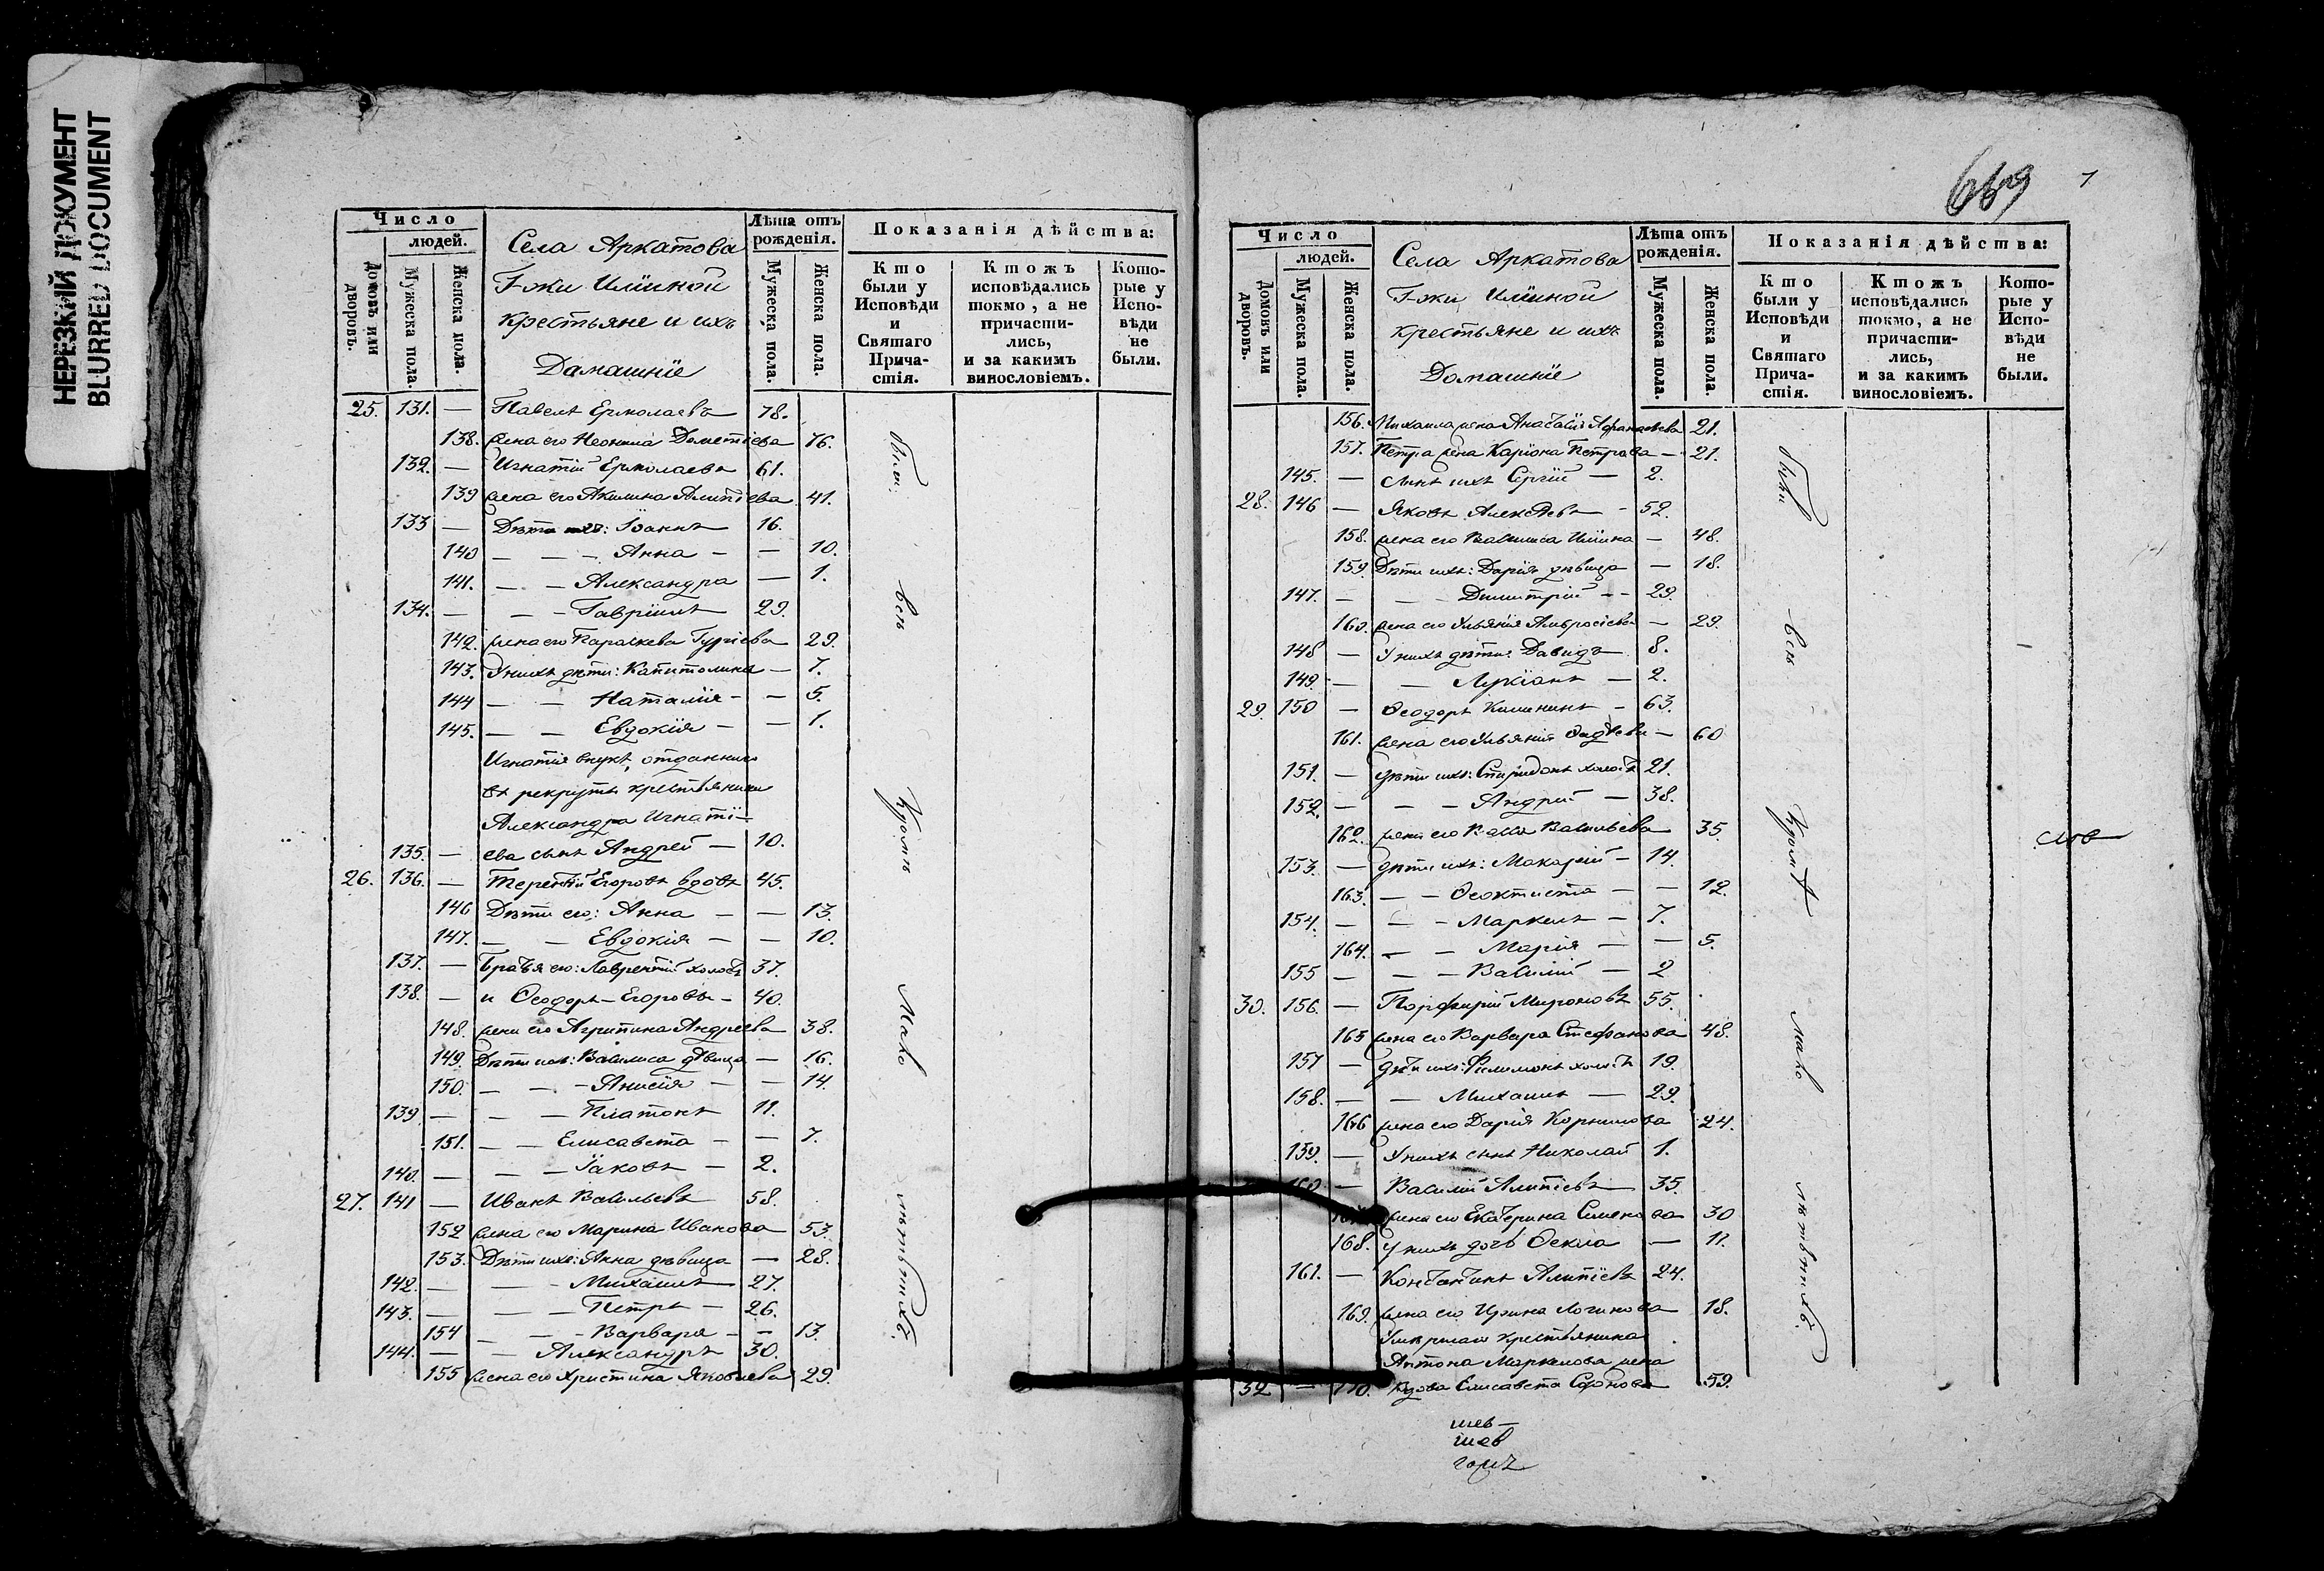 НЕРЕЗКИЙ ДОКУМЕНТ
BLURRED DOCUMENT
Число
людей.
Домовъ или дворовъ.
Мужеска пола.
Женска пола.
Села Аркатова
Г-жи Илйиной
крестьяне и ихъ
Домашнїе
Лѣта отъ рожденія.
Мужеска пола.
Женска пола.
Показанія дѣйства:
Кто были у Исповѣди и Святаго Прича-стія.
Ктожъ исповѣдались токмо, а не причасти-лись, и за какимъ винословіемъ.
Кото-рые у Испо-вѣди не были.
25. 131. — Павелъ Ермолаевъ 78.
138. жена его Неонила Дометіева 76.
132. — Игнатій Ермолаевъ 61.
139 жена его Акилина Алипіева 41.
133 — Дѣти ихъ: Іоаннъ 16.
140 — — — Анна — — 10.
141. — — Александра — 1.
134. — — — Гавріилъ 29.
142. жена его Параскева Гуріева 29.
143. У нихъ дѣти: Капитолина — 7.
144 — — Наталія — — 5.
145. — — Евдокія — — 1.
Игнатія внукъ, отданнаго
въ рекруты крестьянина
Александра Игнаті-
135. — ева сынъ Андрей — 10.
26. 136. — Терентій Егоровъ вдовъ 45.
146 Дѣти его: Анна — — 13.
147. — — Евдокія — — 10.
137. — Братья его: Лаврентій холостъ 37.
138. — и Ѳеодоръ — Егоровы — 40.
148. жена его Агрипина Андреева 38.
149. Дѣти ихъ: Василиса дѣвица — 16.
150. — — — Анисія — — 14.
139 — — — Платонъ 11.
151. — — Елисавета — — 7.
140. — — — Іаковъ — 2.
27. 141 — Иванъ Васильевъ 58.
152 жена его Марина Иванова 53.
153. Дѣти ихъ: Анна дѣвица — 28.
142. — — — Михаилъ — 27.
143. — — — Петръ — 26.
154 — — — Варвара — — 13.
144. — — Александръ 30.
155 жена его Христина Яковлева 29.
были
всѣ
кромѣ
мало
лѣтныхъ.
669
Число
людей.
Домовъ или дворовъ.
Мужеска пола.
Женска пола.
Села Аркатова
Г-жи Илйиной
крестьяне и ихъ
Домашнїе
Лѣта отъ рожденія.
Мужеска пола.
Женска пола.
Показанія дѣйства:
Кто были у Исповѣди и Святаго Прича-стія.
Ктожъ исповѣдались токмо, а не причасти-лись, и за какимъ винословіемъ.
Кото-рые у Испо-вѣди не были.
156. Михаила жена Анастасія Афанасьева 21.
157. Петра жена Петрова — 21.
145. — сынъ ихъ Сергій — 2.
28. 146 — Яковъ Алексѣевъ — 52.
158. жена его Василиса Ильина — 48.
159. Дѣти ихъ: Дарія дѣвица — 18.
147. — — — Димитрій — — 29.
160. жена его Ульянія Амвросіева — 29.
148 — У нихъ дѣти: Давидъ 8.
149. — — Лукіанъ — 2.
29. 150 — Ѳеодоръ — 63.
161. жена его Ульянія Ѳадѣева — 60
151. — дѣти ихъ: Спиридонъ холостъ 21.
152. — — — Андрей — 38.
162. жена его Васса Васильева 35.
153. — дѣти ихъ: Макарій — 14.
163. — — Ѳеоктиста — — 12.
154. — — — Маркелъ — 7.
164. — — Марія — — 5.
155 — — — Василій — 2
30. 156. — Порфирій Мироновъ 55.
165 жена его Варвара Стефанова 48.
157 — дѣти ихъ: Филимонъ холостъ 19.
158. — — Михаилъ — 29.
166 жена его Дарія Корнилова 24.
159. — У нихъ сынъ Николай 1.
— Василій Алипіевъ 35.
жена его Екатерина Семенова 30
168. у нихъ дочь Ѳекла — 11.
161. — Константинъ Алипіевъ 24.
169. жена его Ирина Логинова 18.
Умершаго крестьянина
Антона Маркелова жена
32 — 170. вдова Елисавета 59.
были
всѣ
кромѣ
мало
лѣтныхъ.